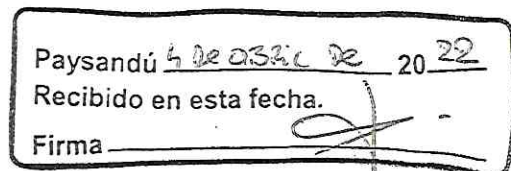 Paysandú 4 De abril De 2022
Recibido en esta fecha.
Firma